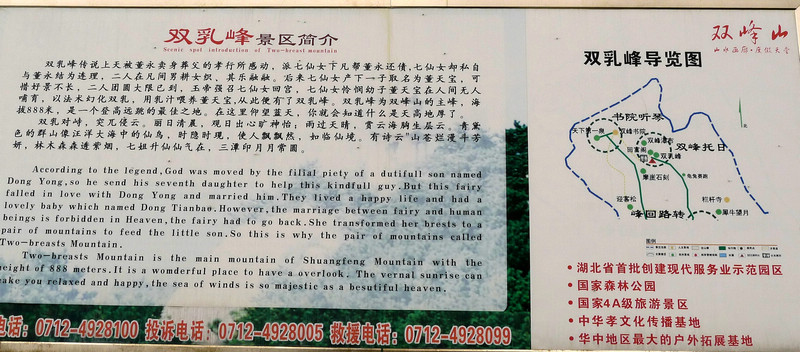 双乳峰景区简介
Scenic spot introduction of Two-breast mountain
双乳峰传说上天被董永卖身葬父的孝行所感动，派七仙女下凡帮董永还债，七仙女却私自
与董永结为连理，二人在凡间男耕女织、其乐融融。后来七仙女产下一子取名为董天宝，可
惜好景不长，二人团圆大限已到，玉帝强召七仙女回宫，七仙女怜悯幼子董天宝在人间无人
哺育，以法术幻化双乳，用乳汁喂养董天宝，从此便有了双乳峰。双乳峰为双峰山的主峰，海
拔888米，是一个登高远眺的最佳之地。在这里仰望蓝天，你就会知道什么是天高地厚了。
双乳对峙，突兀侵云。丽日清晨，观日出心旷神怡；雨过天晴，赏云海胸生层云。青黛
色的群山像汪洋大海中的仙岛，时隐时现，使人飘飘然，如临仙境。有诗云"山苍烂漫斗芳
妍，林木森森逢紫烟，七姐仟仙仙气在，三潭印月月常圆。
According to the legend,God was moved by the filial piety of a dutifull son named
Dong Yong,so he send his seventh daughter to help this kindfull guy.But this fairy
falled in love with Dong Yong and married him.They lived a happy life and had a
lovely baby which named Dong Tianbao.However,the marriage between fairy and human
beings is forbidden in Heaven,the fairy had to go back.She transformed her brests to a
pair of mountains to feed the little son.So this is why the pair of mountains called
Two-breasts Mountain.
Two-breasts Mountain is the main mountain of Shuangfeng Mountain with the
height of 888 meters.It is a womderful place to have a overlook. The vernal sunrise can
make you relaxed and happy,the sea of winds is so majestic as a besutiful heaven.
电话：0712-4928100 投诉电话：0712-4928005 救援电话：0712-4928099
双峰山
双乳峰导览图
书院听琴
天下第一泉
双峰书院
双峰托日
迎宾阁
双乳峰
摩崖石刻
迎客松
峰回路转
犀牛望月
图例
·湖北省首批创建现代服务业示范园区
·国家森林公园
·国家4A级旅游景区
·中华孝文化传播基地
·华中地区最大的户外拓展基地